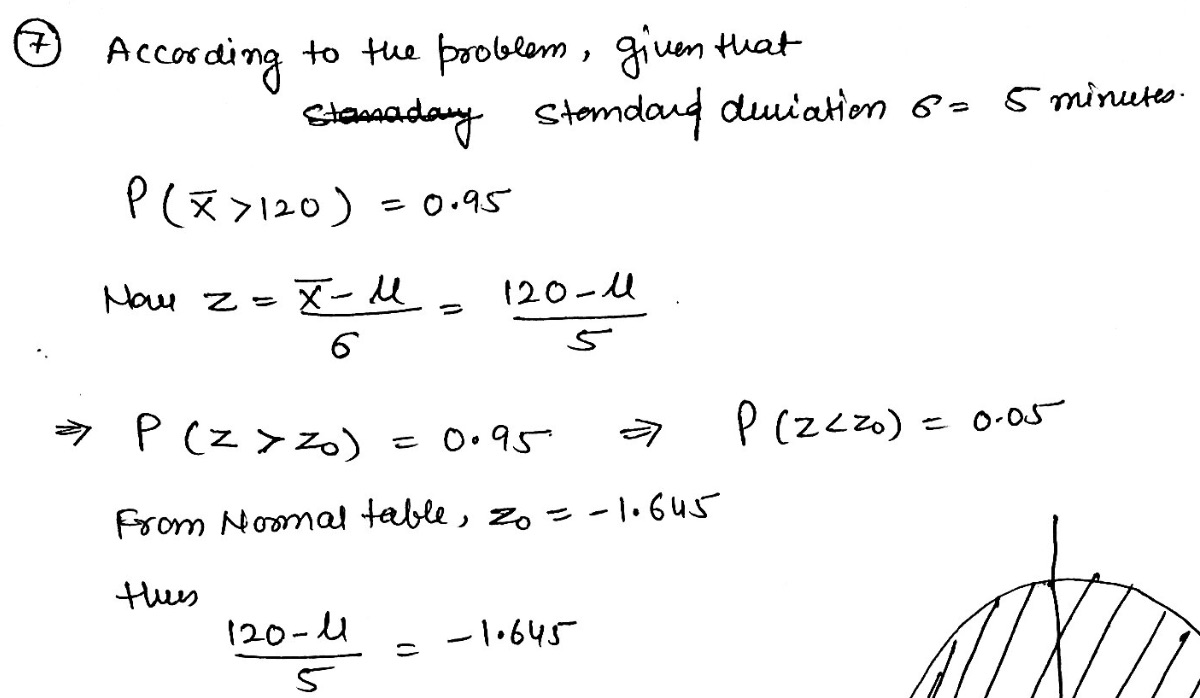 7 According to the problem, given that
Standard deviation σ = 5 minutes.
P(x̄ > 120) = 0.95
Now z = (x̄ - μ)/σ = (120 - μ)/5
⇒ P(z > z₀) = 0.95 ⇒ P(z < z₀) = 0.05
From Normal table, z₀ = -1.645
thus
(120 - μ)/5 = -1.645